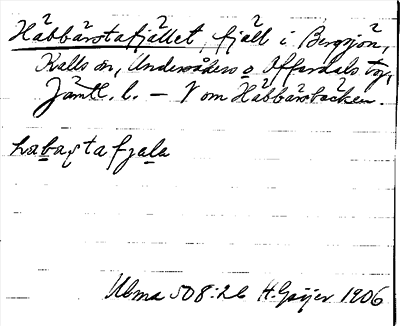 Håbbårstafjället, fjäll i Bergsjön,
Kalls sn, Undersåkers o Offerdals tgr,
Jämtl. l. — V om Håbbårsbäcken.
habaṣtafjala
Ulma 508:26 H. Geijer 1906